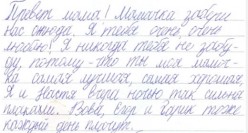 Привет мама! Мамочка забери
нас отсюда. Я тебя очень, очень
люблю! Я никогда тебя не забу-
ду, потому-что ты моя мамоч-
ка самая лучшая, самая хорошая.
Я и Настя вчера ночью так сильно
плакали. Вова, Егор и Борик тоже
каждый день плачут.